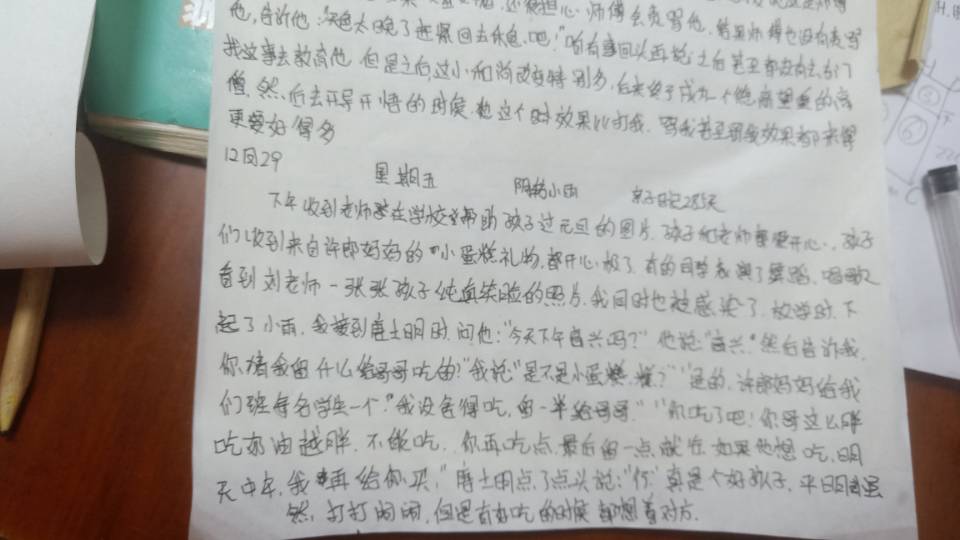 他,告诉他:"天色太晚了赶紧回去休息吧!"
我这事去教育他,但是之后,这小和尚改变特别多,后来终于成为一个德高望重的高
僧,然后去开导开悟的时候,他这个时效果比打我,骂我甚至罚我效果都来得
更要好得多
12月29 星期五 阴转小雨 亲子日记285天
下午收到老师在学校帮助孩子过元旦的图片,孩子和老师都很开心,孩子
们收到来自许郎妈妈的"小蛋糕礼物,都开心极了,有的同学表演了舞蹈,唱歌,
看到刘老师一张张孩子纯真笑脸的照片,我同时也被感染了,放学时,下
起了小雨,我接到唐士明时,问他:"今天下午高兴吗?"他说:"高兴."然后告诉我,
你猜我留什么给哥哥吃的?"我说:"是不是小蛋糕,糕?""是的,许郎妈妈给我
们班每名学生一个."我没舍得吃,留一半给哥哥""你吃了吧!你哥这么胖
吃奶油越胖,不能吃,你再吃点,最后留一点就行,如果他想吃,明
天中午,我再给你买,"唐士明点了点头说:"行"真是个好孩子,平日虽
然,打打闹闹,但是有好吃的时候都想着对方.